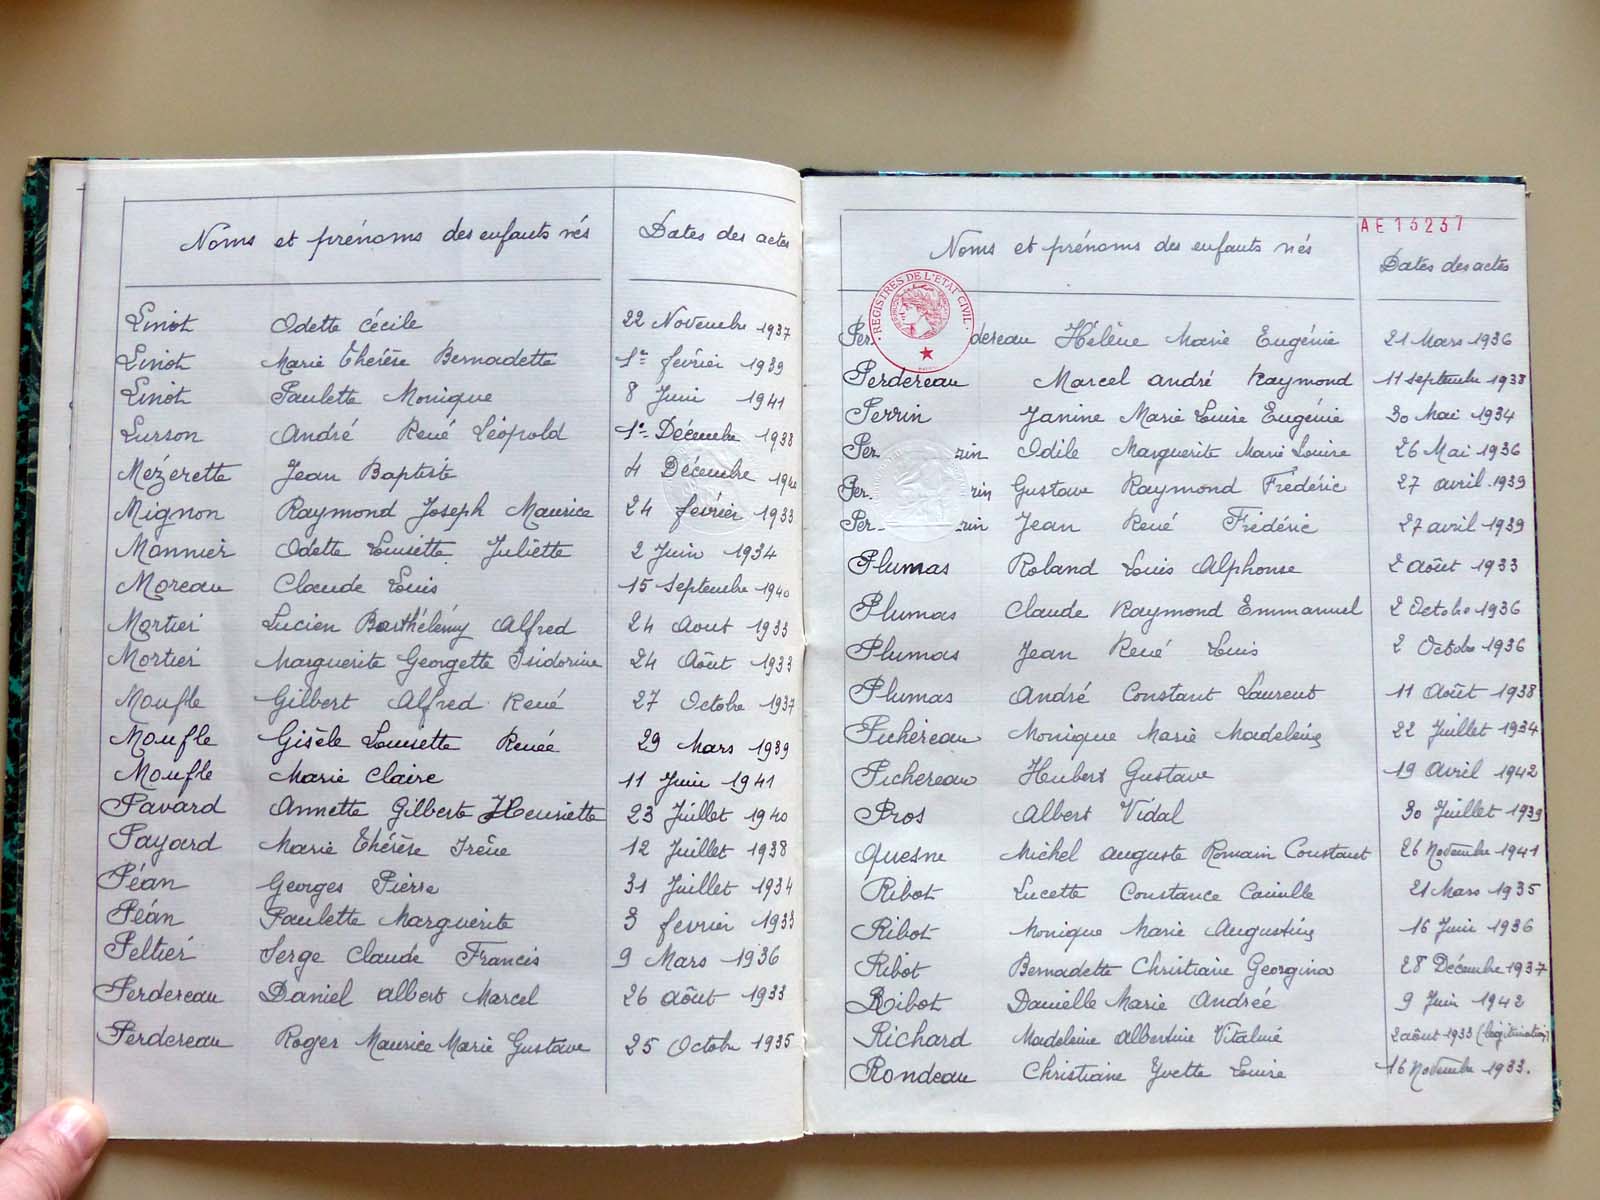 Noms et prénoms des enfants nés Dates des actes
Linot Odette Cécile 22 Novembre 1937
Linot Marie Thérèse Bernadette 1er février 1939
Linot Paulette Monique 8 Juin 1941
Lurson André René Léopold 1er Décembre 1938
Mézerette Jean Baptiste 4 Décembre 1940
Mignon Raymond Joseph Maurice 24 février 1933
Monnier Odette Louisette Juliette 2 Juin 1934
Moreau Claude Louis 15 Septembre 1940
Mortier Lucien Barthélémy Alfred 24 Aout 1933
Mortier Marguerite Georgette Isidorine 24 Août 1933
Moufle Gilbert Alfred René 27 Octobre 1937
Moufle Gisèle Louisette Renée 29 Mars 1939
Moufle Marie Claire 11 Juin 1941
Pavard Annette Gilberte Henriette 23 Juillet 1940
Payard Marie Thérèse Irène 12 Juillet 1938
Péan Georges Pierre 31 Juillet 1934
Péan Paulette Marguerite 3 fevrier 1933
Peltier Serge Claude Francis 9 Mars 1936
Perdereau Daniel Albert Marcel 26 août 1933
Perdereau Roger Maurice Marie Gustave 25 Octobre 1935
AE 13237
Noms et prénoms des enfants nés Dates des actes
REGISTRES DE L'ÉTAT CIVIL
Perdereau Hélène Marie Eugénie 21 Mars 1936
Perdereau Marcel André Raymond 11 septembre 1938
Perrin Janine Marie Louise Eugénie 30 Mai 1934
Perrin Odile Marguerite Marie Louise 26 Mai 1936
Perrin Gustave Raymond Frédéric 27 avril 1939
Perrin Jean René Frédéric 27 avril 1939
Plumas Roland Louis Alphonse 2 août 1933
Plumas Claude Raymond Emmanuel 2 Octobre 1936
Plumas Jean René Louis 2 Octobre 1936
Plumas André Constant Laurent 11 Août 1938
Pichereau Monique Marie Madeleine 22 Juillet 1934
Pichereau Hubert Gustave 19 Avril 1942
Pros Albert Vidal 30 Juillet 1939
Quesne Michel Auguste Romain Constant 26 Novembre 1941
Ribot Lucette Constance Camille 21 Mars 1935
Ribot Monique Marie Augustine 16 Juin 1936
Ribot Bernadette Christiane Georgina 28 Décembre 1937
Ribot Danielle Marie Andrée 9 Juin 1942
Richard Madeleine Albertine Vitaline 2 août 1933 (légitimation)
Rondeau Christiane Yvette Louise 16 Novembre 1933.